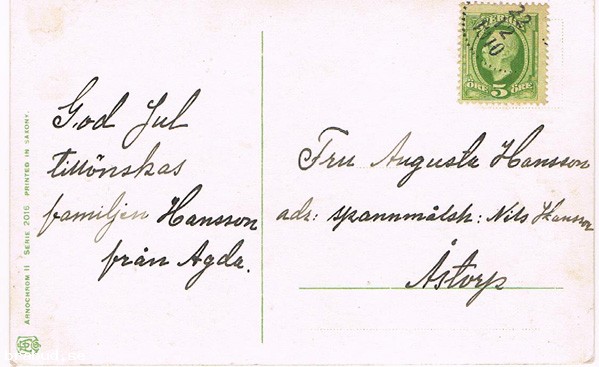 God Jul
tillönskas
familjen Hansson
från Agda.
SVERIGE
ÖRE 5 ÖRE
22
12
10
Fru Augusta Hansson
adr: spannmålsh: Nils Hansson
Åstorp
ARNOCHROM II SERIE 2016 PRINTED IN SAXONY.